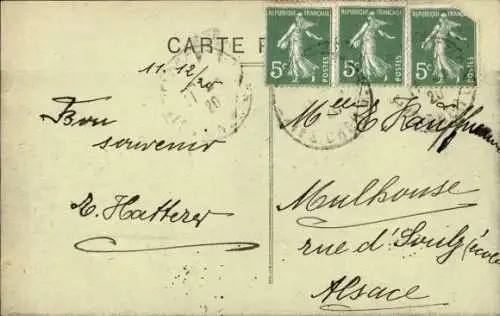 CARTE P
REPUBLIQUE FRANÇAISE
5c
POSTES
REPUBLIQUE FRANÇAISE
5c
POSTES
REPUBLIQUE FRANÇAISE
5c
POSTES
11.12/20
20
Bon
souvenir
E. Hatterer
Melle E
Mulhouse
rue d'Soultz (école
Alsace